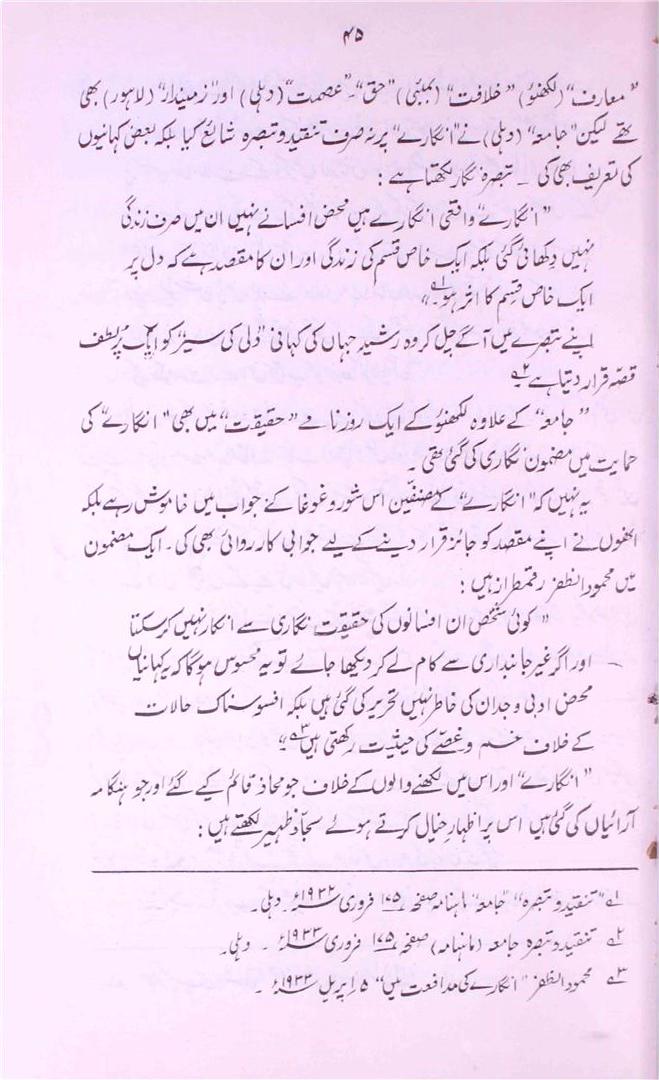 ۴۵
”معارف“ (لکھنؤ) ”خلافت“ (بمبئی) ”حق“۔ ”عصمت“ (دہلی) اور ”زمیندار“ (لاہور) بھی
تھے لیکن ”جامعہ“ (دہلی) نے ”انگارے“ پر نہ صرف تنقید و تبصرہ شائع کیا بلکہ بعض کہانیوں
کی تعریف بھی کی ۔ تبصرہ نگار لکھتا ہے :
”انگارے“ واقعی انگارے ہیں محض افسانے نہیں ان میں صرف زندگی
نہیں دکھائی گئی بلکہ ایک خاص قسم کی زندگی اور ان کا مقصد ہے کہ دل پر
ایک خاص قسم کا اثر ہو“ ۱؎
اپنے تبصرے میں آگے چل کر وہ رشید جہاں کی کہانی ”دلی کی سیر“ کو ایک پُرلطف
قصّہ قرار دیتا ہے ۲؎
”جامعہ“ کے علاوہ لکھنؤ کے ایک روزنامے ”حقیقت“ میں بھی ”انگارے“ کی
حمایت میں مضمون نگاری کی گئی تھی ۔
یہ نہیں کہ ”انگارے“ کے مصنفین اس شور و غوغا کے جواب میں خاموش رہے بلکہ
انھوں نے اپنے مقصد کو جائز قرار دینے کے لیے جوابی کارروائی بھی کی ۔ ایک مضمون
میں محمود الظفر رقمطراز ہیں :
”کوئی شخص ان افسانوں کی حقیقت نگاری سے انکار نہیں کر سکتا
اور اگر غیر جانبداری سے کام لے کر دیکھا جائے تو یہ محسوس ہوگا کہ یہ کہانیاں
محض ادبی وجدان کی خاطر نہیں تحریر کی گئی ہیں بلکہ افسوسناک حالات
کے خلاف غم و غصّے کی حیثیت رکھتی ہیں ۳؎“
”انگارے“ اور اس میں لکھنے والوں کے خلاف جو محاذ قائم کیے گئے اور جو ہنگامہ
آرائیاں کی گئی ہیں اس پر اظہارِ خیال کرتے ہوئے سجاد ظہیر لکھتے ہیں :
۱؎ ”تنقید و تبصرہ“ ”جامعہ“ ماہنامہ صفحہ ۱۷۵ فروری ۱۹۳۲ء۔ دہلی۔
۲؎ تنقید و تبصرہ جامعہ (ماہنامہ) صفحہ ۱۷۵ فروری ۱۹۳۳ء ۔ دہلی۔
۳؎ محمود الظفر ”انگارے کی مدافعت میں“ ۵ / اپریل ۱۹۳۳ء ۔